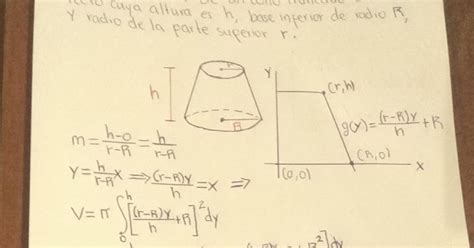 recto cuya altura es h, base inferior de radio R,
y radio de la parte superior r.
h
r
R
y
(r,h)
g(y)=(r-R)y/h+R
(R,0)
(0,0)
x
m=h-0/r-R=h/r-R
y=h/r-R x ⇒ (r-R)y/h=x ⇒
V=π∫₀ʰ[(r-R)y/h+R]²dy